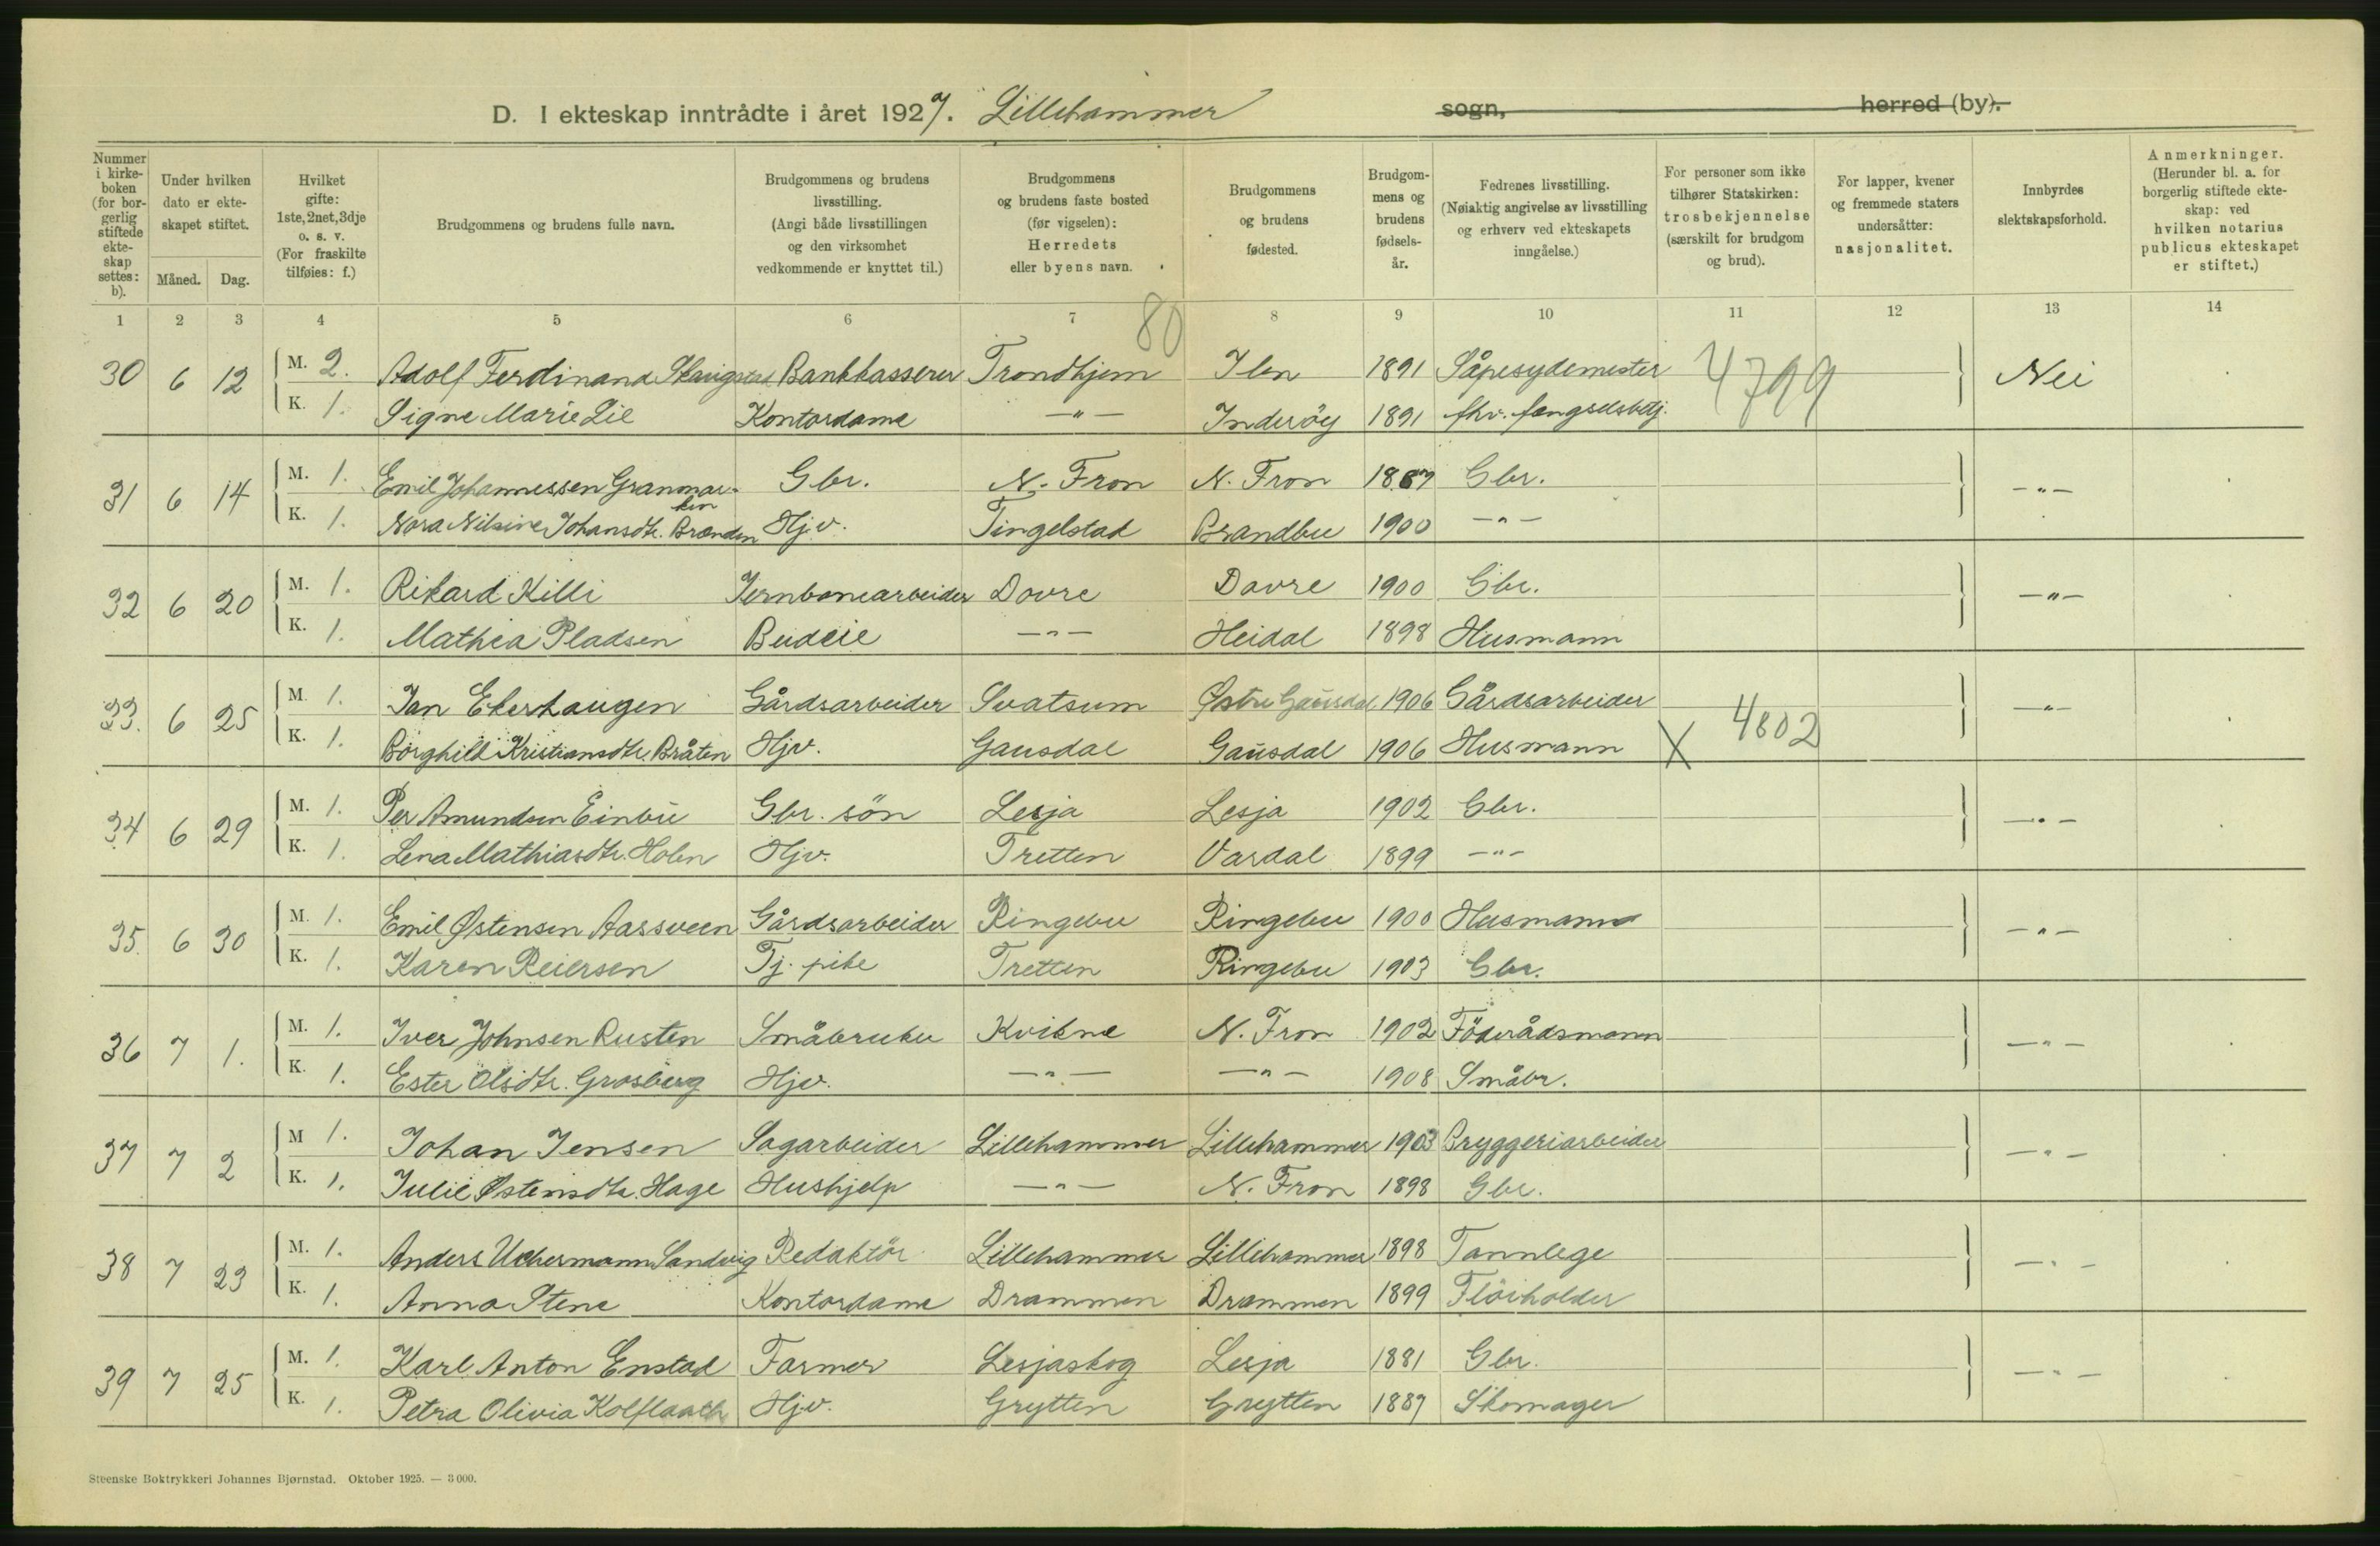 D. I ekteskap inntrådte i året 1927. Lillehammer sogn, herred (by).
Nummer i kirkeboken (for borgerlig stiftede ekteskap settes: b).
Under hvilken dato er ekteskapet stiftet.
Måned. Dag.
Hvilket gifte: 1ste, 2net, 3dje o. s. v. (For fraskilte tilføies: f.)
Brudgommens og brudens fulle navn.
Brudgommens og brudens livsstilling. (Angi både livsstillingen og den virksomhet vedkommende er knyttet til.)
Brudgommens og brudens faste bosted (før vigselen): Herredets eller byens navn.
Brudgommens og brudens fødested.
Brudgommens og brudens fødselsår.
Fedrenes livsstilling. (Nøiaktig angivelse av livsstilling og erhverv ved ekteskapets inngåelse.)
For personer som ikke tilhører Statskirken: trosbekjennelse (særskilt for brudgom og brud).
For lapper, kvener og fremmede staters undersåtter: nasjonalitet.
Innbyrdes slektskapsforhold.
Anmerkninger. (Herunder bl. a. for borgerlig stiftede ekteskap: ved hvilken notarius publicus ekteskapet er stiftet.)
1 2 3 4 5 6 7 8 9 10 11 12 13 14
80
30 6 12 M. 2. Adolf Ferdinand Skaugstad Bankkasserer Trondhjem Ilen 1891 Såpesydemester 4799 Nei
K. 1. Signe Marie Lie Kontordame —"— Inderöy 1891 fhv. fengselsbetj.
31 6 14 M. 1. Emil Johannessen Granmarken Gbr. N. Fron N. Fron 1887 Gbr. —"—
K. 1. Nora Nilsine Johansdtr. Brænden Hjv. Tingelstad Brandbu 1900 —"—
32 6 20 M. 1. Rikard Killi Jernbanearbeider Dovre Dovre 1900 Gbr. —"—
K. 1. Mathea Pladsen Budeie —"— Heidal 1898 Husmann
33. 6 25 M. 1. Jan Ekerhaugen Gårdsarbeider Svatsum Østre Gausdal 1906 Gårdsarbeider —"—
K. 1. Borghild Kristiansdtr. Bråten Hjv. Gausdal Gausdal 1906 Husmann X 4802
34 6 29 M. 1. Per Amundsen Einbu Gbr. sön Lesja Lesja 1902 Gbr. —"—
K. 1. Lena Mathiasdtr. Holen Hjv. Tretten Vardal 1899 —"—
35. 6 30 M. 1. Emil Østensen Aassveen Gårdsarbeider Ringebu Ringebu 1900 Husmann —"—
K. 1. Karen Reiersen Tj. pike Tretten Ringebu 1903 Gbr.
36 7 1. M. 1. Iver Johnsen Rusten Småbruker Kvikne N. Fron 1902 Föderådsmann —"—
K. 1. Ester Olsdtr. Grosberg Hjv. —"— —"— 1908 Småbr.
37 7 2 M 1. Johan Jensen Sagarbeider Lillehammer Lillehammer 1903 Bryggeriarbeider —"—
K. 1. Julie Østensdtr. Hage Hushjelp —"— N. Fron 1898 Gbr.
38 7 23 M. 1. Anders Uchermann Sandvig Redaktör Lillehammer Lillehammer 1898 Tannlege —"—
K. 1. Anna Stene Kontordame Drammen Drammen 1899 Flöiholder
39 7 25 M. 1. Karl Anton Enstad Farmer Lesjaskog Lesja 1881 Gbr. —"—
K. 1. Petra Olivia Kolflaath Hjv. Grytten Grytten 1887 Skomager
Steenske Boktrykkeri Johannes Bjørnstad. Oktober 1925. — 3 000.